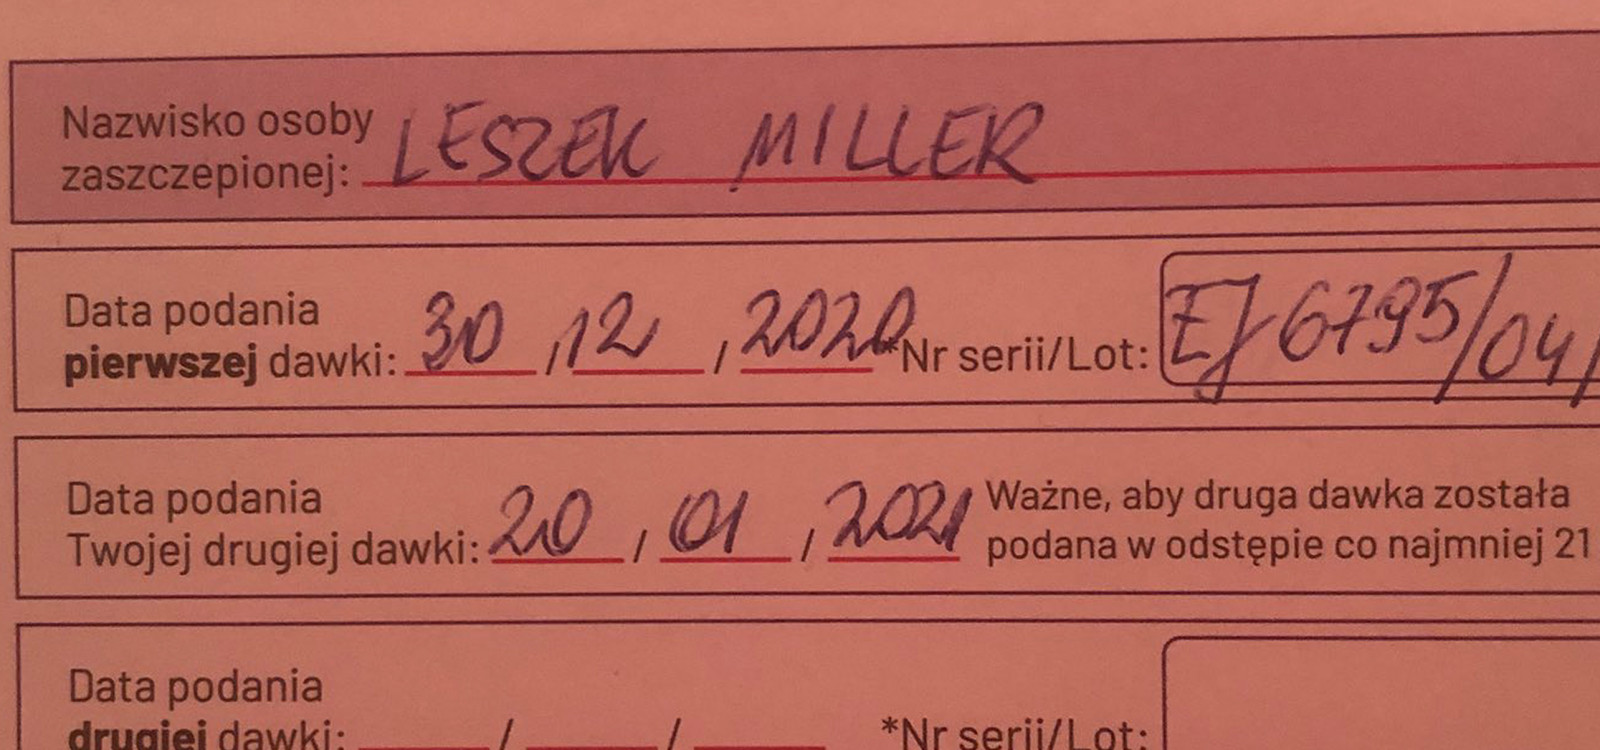 Nazwisko osoby
zaszczepionej: LESZEK MILLER
Data podania
pierwszej dawki: 30 / 12 / 2020 *Nr serii/Lot: EJ 6795/04/
Data podania
Twojej drugiej dawki: 20 / 01 / 2021
Ważne, aby druga dawka została
podana w odstępie co najmniej 21
Data podania
drugiej dawki: / / *Nr serii/Lot: